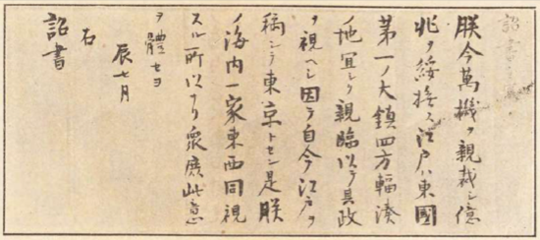 朕今萬機ヲ親裁シ億
兆ヲ綏撫ス江戸ハ東國
第一ノ大鎮四方輻湊
ノ地宜シク親臨以テ其政
ヲ視ヘシ因テ自今江戸ヲ
稱シテ東京トセン是朕
ノ海内一家東西同視
スル所以ナリ衆庶此意
ヲ體セヨ
辰七月
右
詔書